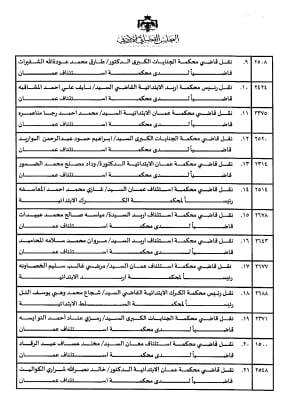 المجلس القضائي الأردني
٩. ٢٥٠٨ نقل قاضي محكمة الجنايات الكبرى الدكتور/ طارق محمد عودة الله الشقيرات
قاضياً لدى محكمة استئناف عمان
١٠. ٢٤٢٤ نقل رئيس محكمة اربد الابتدائية القاضي السيد/ نايف علي احمد المشاقبه
قاضياً لدى محكمة استئناف عمان
١١. ٢٣٧٥ نقل قاضي محكمة عمان الابتدائية السيد/ محمد احمد رجا مناصره
قاضياً لدى محكمة استئناف عمان
١٢. ٢٥٢٠ نقل قاضي محكمة الجنايات الكبرى السيد/ ابراهيم حمود عبدالرحمن البواريد
قاضياً لدى محكمة استئناف عمان
١٣. ٢٣١٤ نقل قاضي محكمة عمان الابتدائية الدكتورة/ وداد مصلح محمد الضمور
قاضياً لدى محكمة استئناف عمان
١٤. ٢٥١٤ نقل قاضي محكمة استئناف عمان السيد/ غازي محمد احمد المعاسفه
رئيساً لمحكمة الكرك الابتدائية
١٥. ٢٦٢٨ نقل قاضي محكمة استئناف اربد السيدة/ مياسه صالح محمد عبيدات
قاضياً لدى محكمة استئناف عمان
١٦. ٢٦٤٣ نقل قاضي محكمة استئناف اربد السيد/ مروان محمد سلامه المحاميد
قاضياً لدى محكمة استئناف عمان
١٧. ٢٦٧٧ نقل قاضي محكمة استئناف عمان السيد/ مرضي غالب سليم الخصاونه
رئيساً لمحكمة اربد الابتدائية
١٨. ٢٦٨٨ نقل رئيس محكمة الكرك الابتدائية القاضي السيد/ شجاع محمد وهبي يوسف التل
رئيساً لمحكمة السلط الابتدائية
١٩. ٢٣٧١ نقل قاضي محكمة الجنايات الكبرى السيد/ رمزي عناد أحمد النوايسه
قاضياً لدى محكمة استئناف عمان
٢٠. ١٥٠٠ نقل قاضي محكمة استئناف معان السيد/ مخلد عساف عيد الرقاد
قاضياً لدى محكمة استئناف عمان
٢١. ٢٥٤٨ نقل قاضي محكمة عمان الابتدائية الدكتور/ خالد نصرالله شراري الكواليت
قاضياً لدى محكمة استئناف عمان